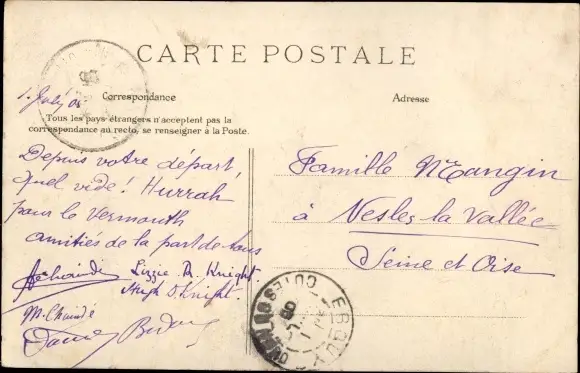 CARTE POSTALE
Correspondance
Adresse
Tous les pays étrangers n'acceptent pas la
correspondance au recto, se renseigner à la Poste.
Depuis votre départ,
quel vide! Hurrah
pour le Vermouth
amitiés de la part de tous
Lizzie A. Knight
Hugh D. Knight
Famille Mangin
à Nesles la Vallée
Seine et Oise
ERQUY
COTES DU NORD